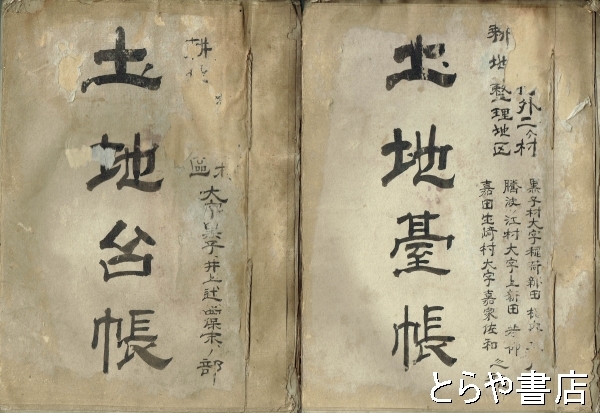 耕地整理地区
外二ヶ村
黒子村大字稲荷新田
騰波江村大字上新田
嘉田生崎村大字嘉家佐和之
土地臺帳
耕地
区
大字黒子井上辻西保末ノ部
土地台帳
とらや書店